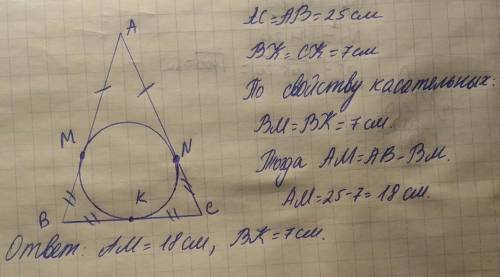 AC=AB=25 см
BK=CK=7см
По свойству касательных:
BM=BK=7см.
Тогда AM=AB-BM.
AM=25-7=18 см.
A
M
N
K
B
C
Ответ: AM=18см, BK=7см.